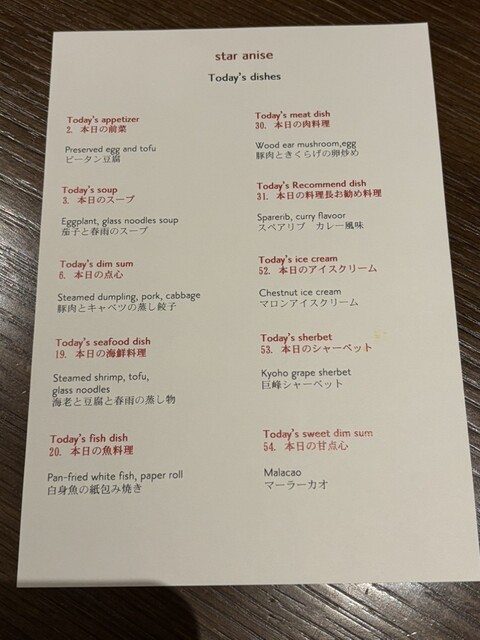 star anise
Today's dishes
Today's appetizer
2. 本日の前菜
Preserved egg and tofu
ピータン豆腐
Today's soup
3. 本日のスープ
Eggplant, glass noodles soup
茄子と春雨のスープ
Today's dim sum
6. 本日の点心
Steamed dumpling, pork, cabbage
豚肉とキャベツの蒸し餃子
Today's seafood dish
19. 本日の海鮮料理
Steamed shrimp, tofu,
glass noodles
海老と豆腐と春雨の蒸し物
Today's fish dish
20. 本日の魚料理
Pan-fried white fish, paper roll
白身魚の紙包み焼き
Today's meat dish
30. 本日の肉料理
Wood ear mushroom,egg
豚肉ときくらげの卵炒め
Today's Recommend dish
31. 本日の料理長お勧め料理
Sparerib, curry flavoor
スペアリブ　カレー風味
Today's ice cream
52. 本日のアイスクリーム
Chestnut ice cream
マロンアイスクリーム
Today's sherbet
53. 本日のシャーベット
Kyoho grape sherbet
巨峰シャーベット
Today's sweet dim sum
54. 本日の甘点心
Malacao
マーラーカオ